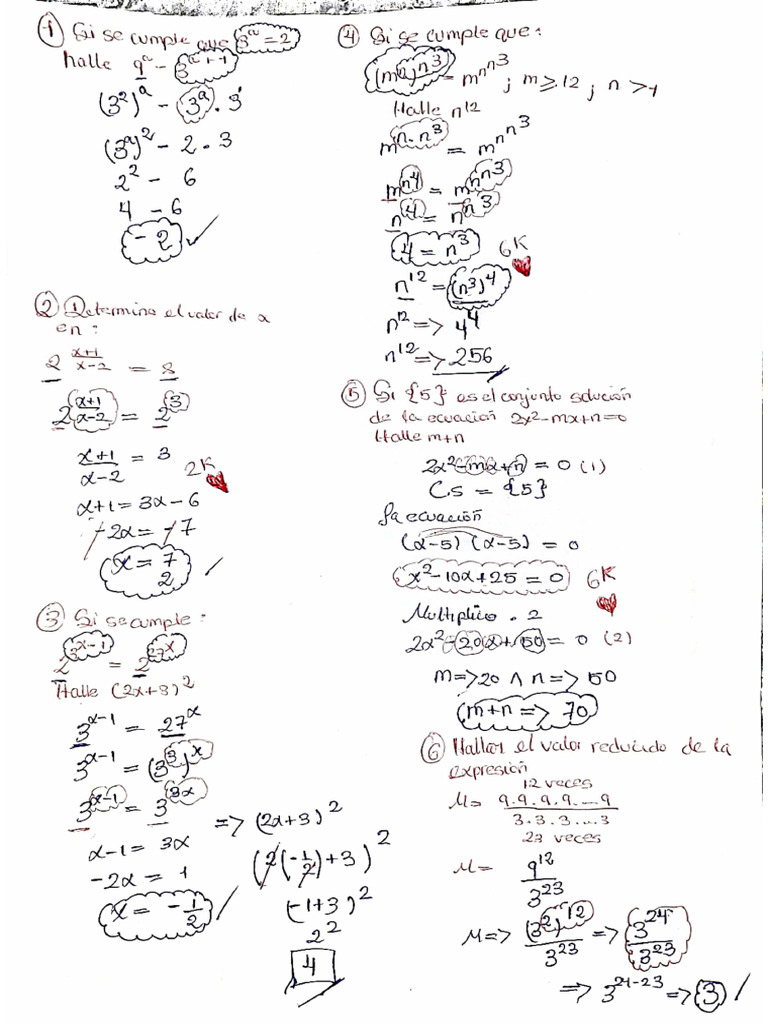 ① Si se cumple que 3^a = 2
halle 9^a - 3^(a+1)
(3^2)^a - 3^a · 3^1
(3^a)^2 - 2 · 3
2^2 - 6
4 - 6
-2
② Determine el valor de x
en:
2^((x+1)/(x-2)) = 8
2^((x+1)/(x-2)) = 2^3
(x+1)/(x-2) = 3
2K
x+1 = 3x-6
-2x = -7
x = 7/2
③ Si se cumple:
2^(3^(x-1)) = 2^(27^x)
Halle (2x+3)^2
3^(x-1) = 27^x
3^(x-1) = (3^3)^x
3^(x-1) = 3^(3x)
x-1 = 3x
-2x = 1
x = -1/2
=> (2x+3)^2
(2(-1/2)+3)^2
(-1+3)^2
2^2
4
④ Si se cumple que:
(m^n)^(n^3) = m^(n^(n^3)) ; m ≥ 12 ; n > 1
Halle n^12
m^(n·n^3) = m^(n^(n^3))
m^(n^4) = m^(n^(n^3))
n^4 = n^(n^3)
4 = n^3
6K
n^12 = (n^3)^4
n^12 => 4^4
n^12 => 256
⑤ Si {5} es el conjunto solución
de la ecuación 2x^2-mx+n=0
Halle m+n
2x^2-mx+n = 0 (1)
CS = {5}
La ecuación
(x-5) (x-5) = 0
x^2-10x+25 = 0
6K
Multiplico · 2
2x^2-20x+50 = 0 (2)
m => 20 ∧ n => 50
m+n => 70
⑥ Hallar el valor reducido de la
expresión
12 veces
M = 9.9.9.9....9
3.3.3....3
23 veces
M = 9^12/3^23
M => (3^2)^12/3^23 => 3^24/3^23
=> 3^(24-23) => 3